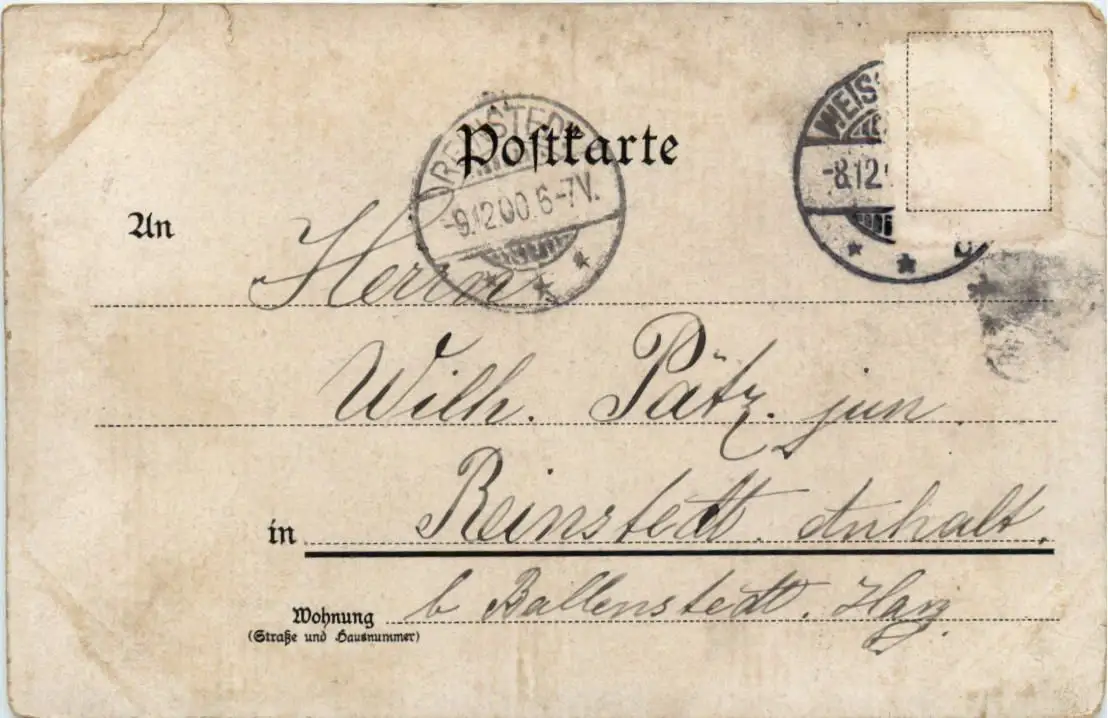 Postkarte
REINSTEDT
-9.12.00.6-7V.
WEISS
-8.12.
An Herrn
Wilh. Pätz. jun.
in Reinstedt. Anhalt.
Wohnung b Ballenstedt. Harz.
(Straße und Hausnummer)